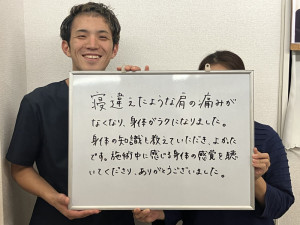 寝違えたような肩の痛みが
なくなり、身体がラクになりました。
身体の知識も教えていただき、よかった
です。施術中に感じる身体の感覚を聴
いてくださり、ありがとうございました。